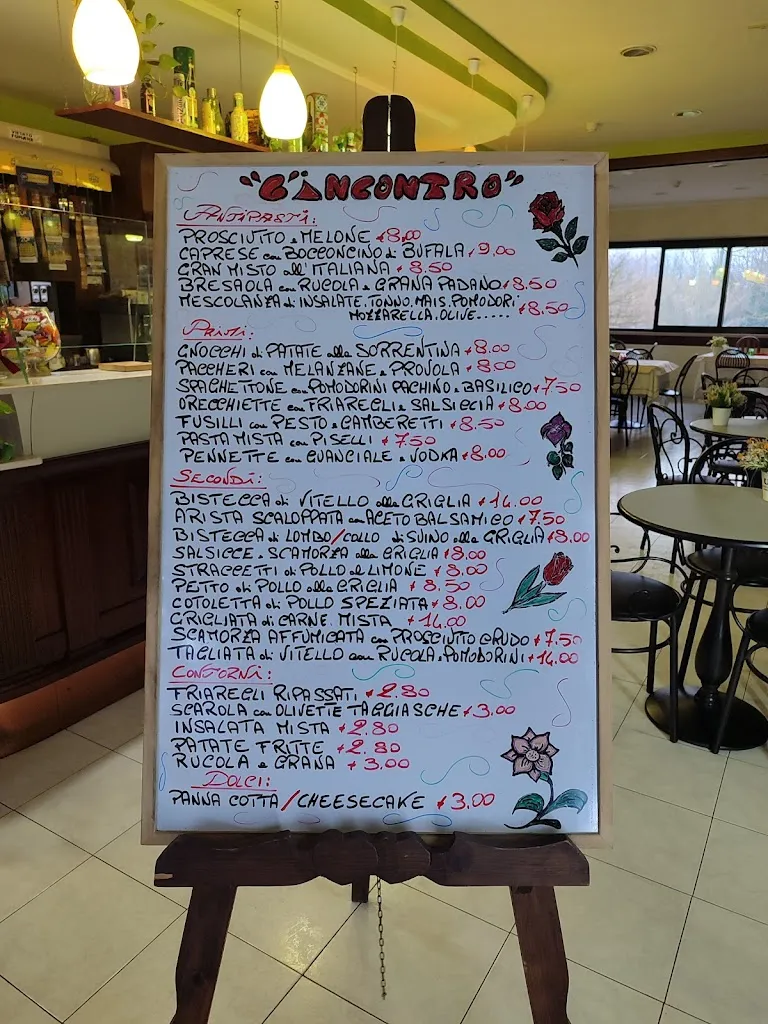 "L'INCONTRO"
ANTIPASTI:
PROSCIUTTO e MELONE € 8,00
CAPRESE con BOCCONCINO di BUFALA € 9,00
GRAN MISTO all'ITALIANA € 8.50
BRESAOLA con RUCOLA e GRANA PADANO € 8.50
MESCOLANZA di INSALATE, TONNO, MAIS, POMODORI
MOZZARELLA, OLIVE..... € 8,50
PRIMI:
GNOCCHI di PATATE alla SORRENTINA € 8.00
PACCHERI con MELANZANE e PROVOLA € 8.00
SPAGHETTONE con POMODORINI PACHINO e BASILICO € 7,50
ORECCHIETTE con FRIARIELLI e SALSICCIA € 8.00
FUSILLI con PESTO e GAMBERETTI € 8.50
PASTA MISTA con PISELLI € 7.50
PENNETTE con GUANCIALE e VODKA € 8,00
SECONDI:
BISTECCA di VITELLO alla GRIGLIA € 14.00
ARISTA SCALOPPATA con ACETO BALSAMICO € 7,50
BISTECCA di LOMBO/COLLO di SUINO alla GRIGLIA € 8,00
SALSICCE e SCAMORZA alla GRIGLIA € 8.00
STRACCETTI di POLLO al LIMONE € 8,00
PETTO di POLLO alla GRIGLIA € 8.50
COTOLETTA di POLLO SPEZIATA € 8,00
GRIGLIATA di CARNE MISTA € 14.00
SCAMORZA AFFUMICATA con PROSCIUTTO CRUDO € 7.50
TAGLIATA di VITELLO con RUCOLA e POMODORINI € 14.00
CONTORNI:
FRIARIELLI RIPASSATI € 2.80
SCAROLA con OLIVETTE TAGGIASCHE € 3,00
INSALATA MISTA € 2.80
PATATE FRITTE € 2.80
RUCOLA e GRANA € 3,00
DOLCI:
PANNA COTTA/CHEESECAKE € 3,00